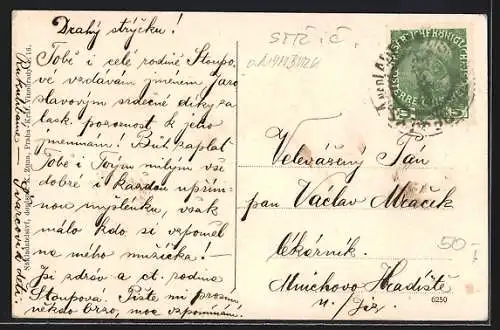 Drahý strýčku!
Tobě i celé rodině Stoupo-
vé vzdávám jménem Jaro
slavovým srdečné díky za
lask. pozornost k jeho
jmeninám! Bůh zaplať
Tobě i Tvým milým vše
dobré i každou upřím-
nou myšlénku, však
málo kdo si vzpoměl
na mého mužíčka! –
Jsi zdráv a ct. rodina
Stoupová. Pište mi prosím
někdo brzo, moc vzpomínám.
STŘ. Č.
Velevážený Pán
pan Václav Mráček
lékárník.
Mnichovo Hradiště
n. Jiz.
50-
6250